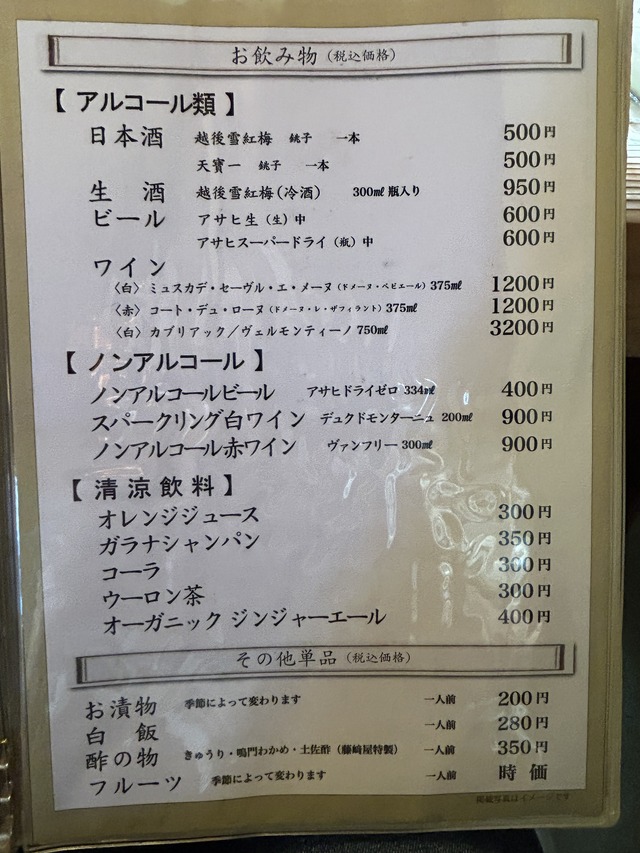 お飲み物（税込価格）
【アルコール類】
日本酒 越後雪紅梅 銚子 一本 500円
天寶一 銚子 一本 500円
生酒 越後雪紅梅（冷酒） 300㎖瓶入り 950円
ビール アサヒ生（生）中 600円
アサヒスーパードライ（瓶）中 600円
ワイン
〈白〉ミュスカデ・セーヴル・エ・メーヌ（ドメーヌ・ペピエール）375㎖ 1200円
〈赤〉コート・デュ・ローヌ（ドメーヌ・レ・ザフィラント）375㎖ 1200円
〈白〉カブリアック／ヴェルモンティーノ 750㎖ 3200円
【ノンアルコール】
ノンアルコールビール アサヒドライゼロ 334㎖ 400円
スパークリング白ワイン デュクドモンターニュ 200㎖ 900円
ノンアルコール赤ワイン ヴァンフリー 300㎖ 900円
【清涼飲料】
オレンジジュース 300円
ガラナシャンパン 350円
コーラ 300円
ウーロン茶 300円
オーガニック ジンジャーエール 400円
その他単品（税込価格）
お漬物 季節によって変わります 一人前 200円
白飯 一人前 280円
酢の物 きゅうり・鳴門わかめ・土佐酢（藤崎屋特製） 一人前 350円
フルーツ 季節によって変わります 一人前 時価
掲載写真はイメージです